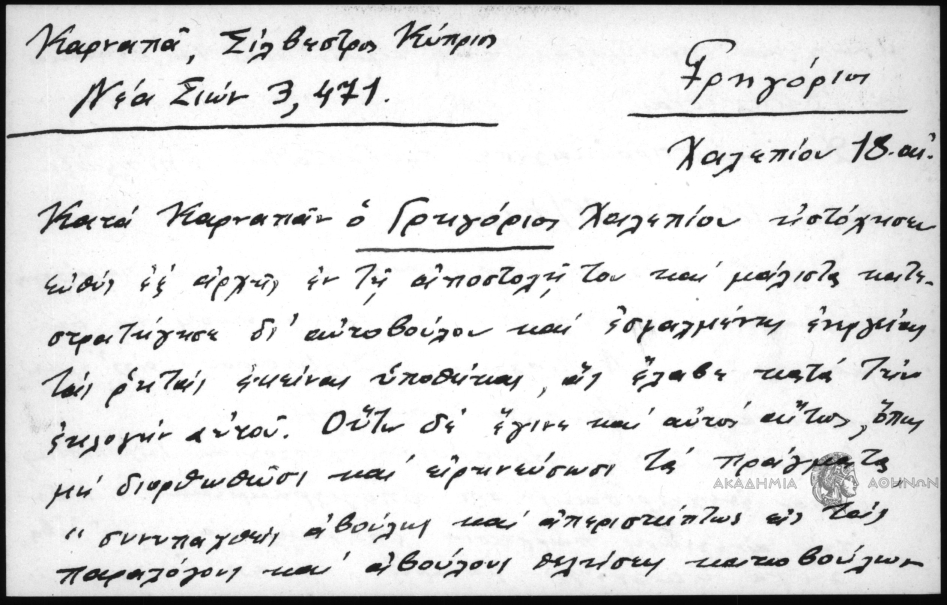 Καρναπᾶ, Σίλβεστρος Κύπριος
Νέα Σιών 3, 471.
Γρηγόριος
Χαλεπίου 18. αἰ.
Κατά Καρναπᾶν ὁ Γρηγόριος Χαλεπίου ἠστόχησεν
εὐθύς ἐξ ἀρχῆς ἐν τῇ ἀποστολῇ του καί μάλιστα κατε-
στρατήγησε δι' αὐτοβούλου καί ἐσφαλμένης ἐνεργείας
τάς ῥητάς ἐκείνας ὑποθήκας, ἅς ἔλαβε κατά τήν
ἐκλογήν αὐτοῦ. Οὕτω δέ ἔγινε καί αὐτός αἴτιος, ὅπως
μή διορθωθῶσι καί εἰρηνεύσωσι τά πράγματα
ΑΚΑΔΗΜΙΑ ΑΘΗΝΩΝ
" συνυπαχθείς ἀβούλως καί ἀπερισκέπτως εἰς τάς
παραλόγους καί ἀβούλους θελήσεις κακοβούλων